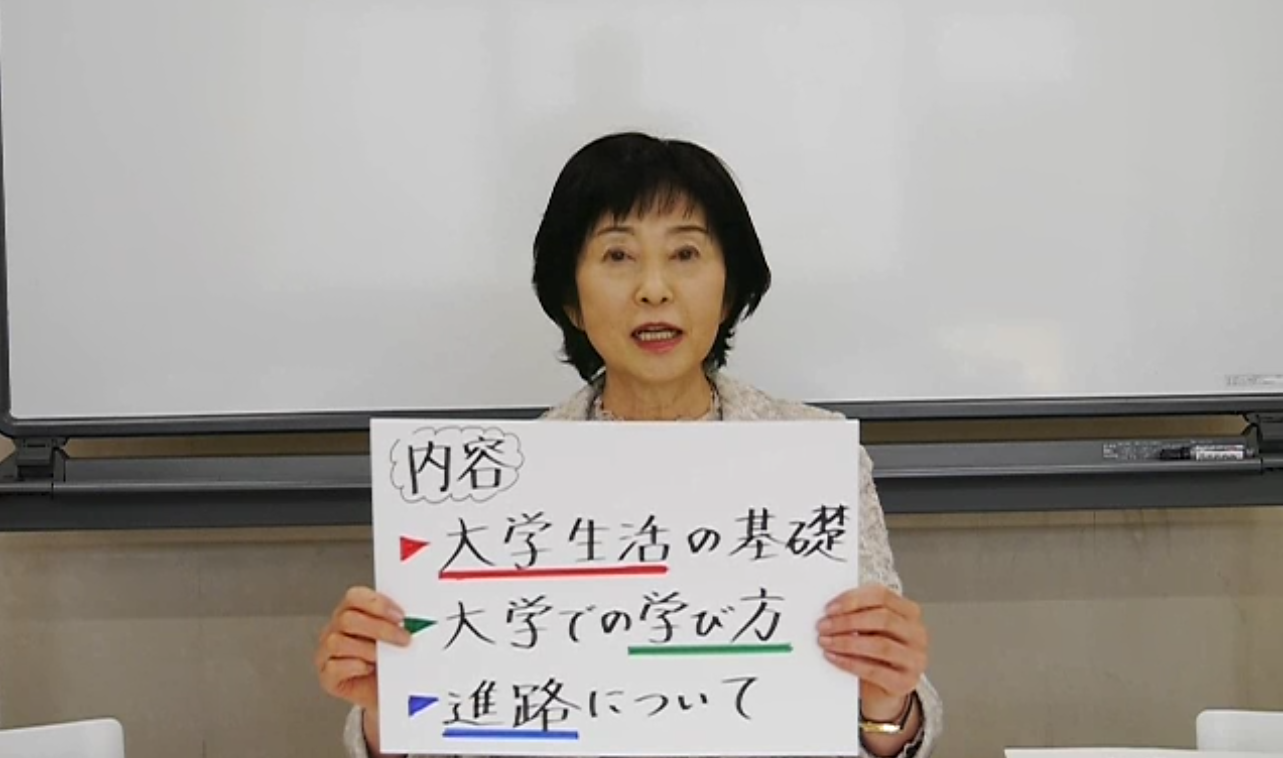 内容
大学生活の基礎
大学での学び方
進路について